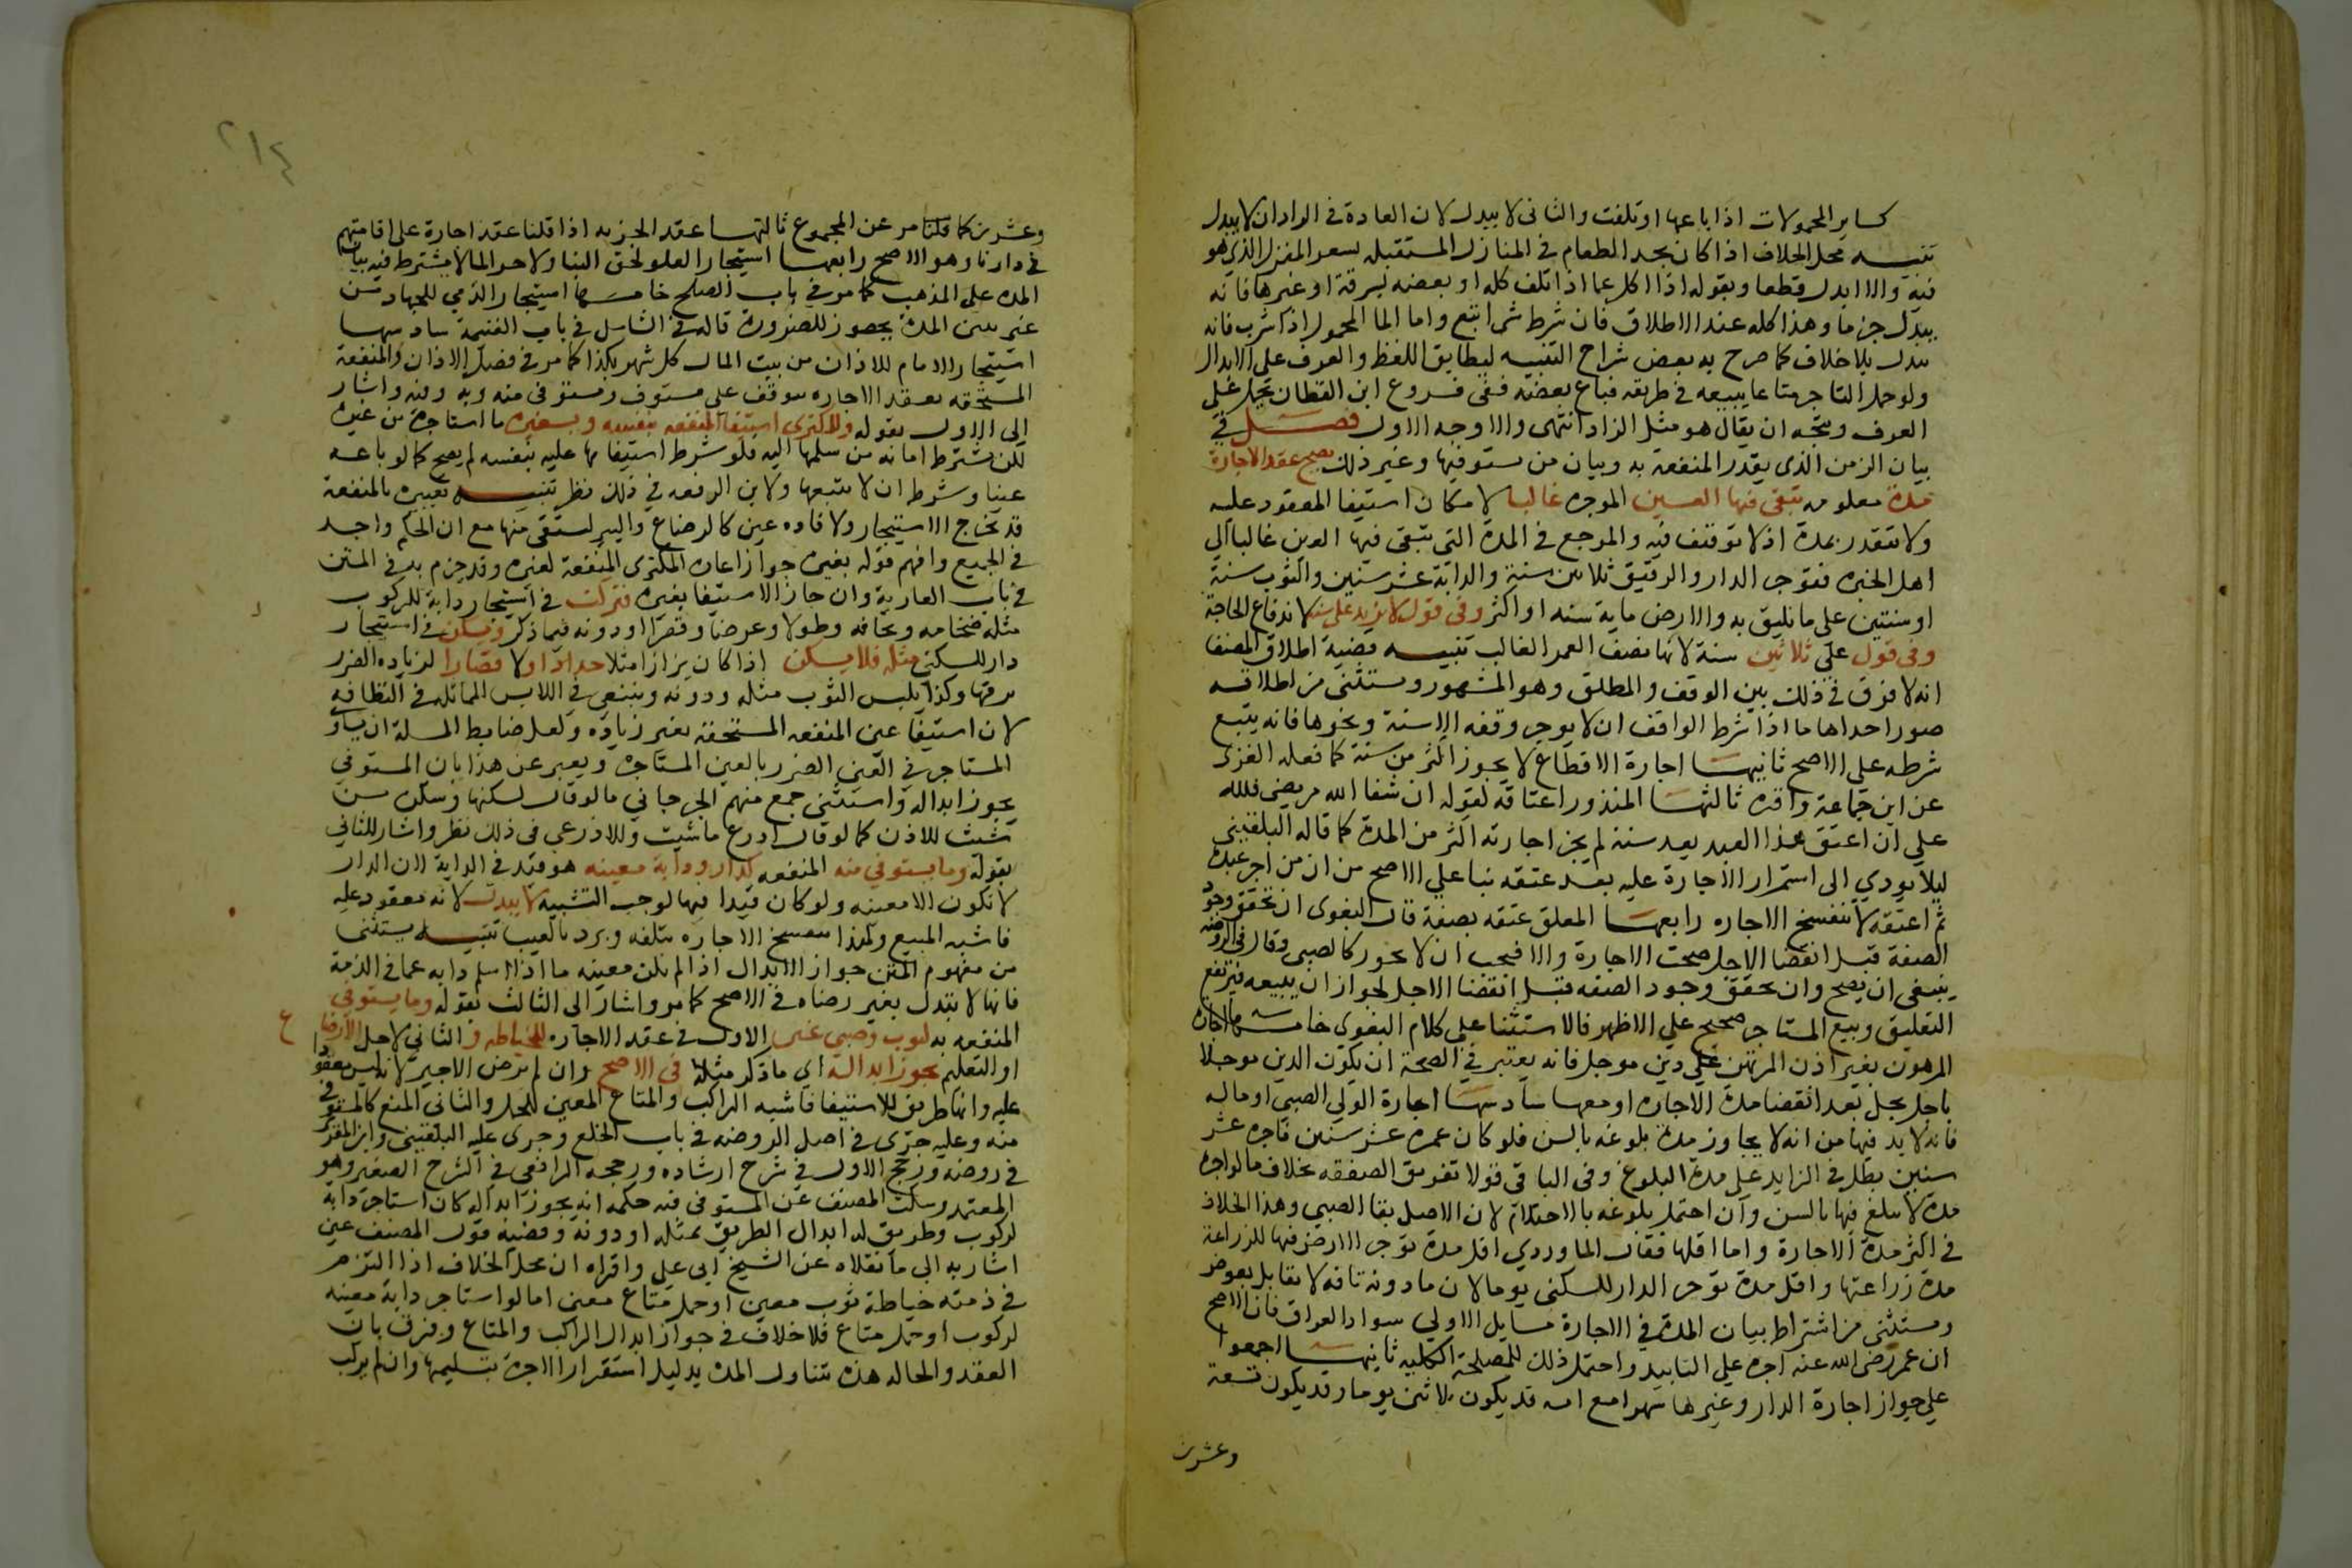 كساير المحمولات اذا باعها او تلفت والثاني لا يبدل لان العادة في الزاد ان لا يبدل
تنبيه محل الخلاف اذا كان يجد الطعام في المنازل المستقبله بسعر المنزل الذي هو
فيه والا ابدل قطعا وبقوله اذا اكل عما اذا تلف كله او بعضه بسرقة او غيرها فانه
يبدل جزما وهذا كله عند الاطلاق فان شرط شي اتبع واما الما المحمول اذا شرب فانه
يبدل بلا خلاف كما صرح به بعض شراح التنبيه لتطابق اللفظ والعرف على الابدال
ولو حمل التاجر متاعا يبيعه في طريقه فباع بعضه ففي فروع ابن القطان يحمل على
العرف ويتجه ان يقال هو مثل الزاد انتهى والاوجه الاول فصل في
بيان الزمن الذي يقدر المنفعة به وبيان من يستوفيها وغير ذلك يصح عقد الاجارة
مدة معلومه تبقى فيها العين الموجره غالبا لامكان استيفا المعقود عليه
ولا تتقدر بمدة اذ لا توقيف فيه والمرجع في المدة التي تبقى فيها العين غالبا الى
اهل الخبره فتوجر الدار والرقيق ثلاثين سنة والدابة عشر سنين والثوب سنة
او سنتين على ما يليق به والارض ماية سنه او اكثر وفي قول لا يزيد على سنه لاندفاع الحاجة
وفي قول على ثلاثين سنة لانها نصف العمر الغالب تنبيه قضية اطلاق المصنف
انه لا فرق في ذلك بين الوقف والمطلق وهو المشهور ويستثنى من اطلاقه
صور احداها ما اذا شرط الواقف ان لا يوجر وقفه الا سنة ونحوها فانه يتبع
شرطه على الاصح ثانيها اجارة الاقطاع لا يجوز اكثر من سنة كما فعله الغزي
عن ابن جماعة واقره ثالثها المنذور اعتاقه لقوله ان شفا الله مريضي فلله
على ان اعتق هذا العبد بعد سنة لم يجز اجارته اكثر من المدة كما قاله البلقيني
ليلا يودي الى استمرار الاجارة عليه بعد عتقه بنا على الاصح من ان من اجر عبده
ثم اعتقه لا تنفسخ الاجاره رابعها المعلق عتقه بصفة قال البغوي ان تحقق وجود
الصفة قبل انقضا الاجل صحت الاجارة والا فيجب ان لا يجوز كالصبي وقال في الروضه
ينبغي ان يصح وان تحقق وجود الصفه قبل انقضا الاجل لجواز ان يبيعه فيرتفع
التعليق وبيع المستاجر صحيح على الاظهر فالاستثنا على كلام البغوي خامسها اجارة
المرهون بغير اذن المرتهن على دين موجل فانه يعتبر في الصحة ان يكون الدين موجلا
باجل يحل بعد انقضا مدة الاجاره او معها سادسها اجارة الولي الصبي او ماله
فانه لا بد فيها من انه لا يجاوز مدة بلوغه بالسن فلو كان عمره عشر سنين فاجره عشر
سنين بطل في الزايد على مدة البلوغ وفي الباقي قولا تفريق الصفقه بخلاف ما لو اجره
مدة لا يبلغ فيها بالسن وان احتمل بلوغه بالاحتلام لان الاصل بقا الصبي وهذا الخلاف
في اكثر مدة الاجارة واما اقلها فقال الماوردي اقل مدة توجر الارض فيها للزراعة
مدة زراعتها واقل مدة توجر الدار للسكنى يوما لان ما دونه تافه لا يقابل بعوض
ويستثنى من اشتراط بيان المدة في الاجارة مسايل الاولى سواد العراق فان الاصح
ان عمر رضي الله عنه اجره على التابيد واحتمل ذلك للمصلحة الكلية ثانيها اجمعوا
على جواز اجارة الدار وغيرها شهرا مع انه قد يكون ثلاثين يوما وقد يكون تسعة
وعشرين
٢١٤
وعشرين كما قلنا مر عن المجموع ثالثها عقد الجزيه اذا قلنا عقد اجارة على اقامتهم
في دارنا وهو الاصح رابعها استيجار العلو لحق البنا ولاجرا الما لا يشترط فيه بيان
المده على المذهب كما مر في باب الصلح خامسها استيجار الذمي للجهاد من
غير بين المدة يجوز للضرورة قاله في الشامل في باب الغنيمة سادسها
استيجار الامام للاذان من بيت المال كل شهر بكذا كما مر في فصل الاذان والمنفعة
المستحقه بعقد الاجاره تتوقف على مستوف ومستوفى منه وبه وفيه واشار
الى الاول بقوله وللمكتري استيفا المنفعه بنفسه وبغيره ما استاجره من غيره
لكن يشترط امانه من سلمها اليه فلو شرط استيفاها عليه بنفسه لم يصح كما لو باعه
عينا وشرط ان لا يبيعها ولابن الرفعه في ذلك نظر تنبيه تعبيره بالمنفعة
قد يخرج الاستيجار ولافاده عين كالرضاع والبير ليستقى منها مع ان الحكم واحد
في الجميع وافهم قوله بغيره جواز اعارة المكتري المنفعة لغيره وقد جزم به في المتن
في باب العارية وان جاز الاستيفا بغيره فيركب في استيجار دابة للركوب
مثله ضخامه ونحافه وطولا وعرضا وقصرا او دونه فيما ذكر ويسكن في استيجار
دار للسكنى مثله فلا يسكن اذا كان بزازا مثلا حدادا ولا قصارا لزياده الضرر
بدقها وكذا يلبس الثوب مثله ودونه وينبغي في اللابس المماثله في النظافه
لان استيفا عين المنفعه المستحقه بغير زياده ولعل ضابط المسلة ان يساو
المستاجر في العين الضرر بالعين المستاجره ويعبر عن هذا بان المستوفي
يجوز ابداله واستثنى جمع منهم الجرجاني ما لو قال لتسكنها وتسكن من
شيت للاذن كما لو قال ازرع ما شيت وللاذرعي في ذلك نظر واشار للثاني
بقوله وما يستوفى منه المنفعه كدار ودابة معينه هو قيد في الدابة لان الدار
لا تكون الا معينه ولو كان قيدا فيها لوجب التثنيه لا يبدل لانه معقود عليه
فاشبه المبيع ولهذا تنفسخ الاجاره بتلفه ويرد بالعيب تنبيه يستثنى
من مفهوم المتن جواز الابدال اذا لم تكن معينه ما اذا اسلم دابه عما في الذمة
فانها لا تبدل بغير رضاه في الاصح كما مر واشار الى الثالث بقوله وما يستوفى
المنفعه به كثوب وصبي عين الاول في عقد الاجاره للخياطه و الثاني لاجل الارضاع
او التعليم يجوز ابداله اي ما ذكر مثله في الاصح وان لم يرض الاجير لانه ليس معقودا
عليه وانما طريق للاستيفا فاشبه الراكب والمتاع المعين للحمل والثاني المنع كالمستوفى
منه وعليه جرى في اصل الروضه في باب الخلع وجرى عليه البلقيني وابن المقري
في روضه ورجح الاول في شرح ارشاده ورجحه الرافعي في الشرح الصغير وهو
المعتمد وسكت المصنف عن المستوفى فيه حكمه انه يجوز ابداله كان استاجر دابة
لركوب وطريق له ابدال الطريق بمثله او دونه وقضيه قول المصنف عين
اشار به الى ما نقلاه عن الشيخ ابي علي واقراه ان محل الخلاف اذا التزم
في ذمته خياطة ثوب معين او حمل متاع معين اما لو استاجر دابة معينه
لركوب او حمل متاع فلا خلاف في جواز ابدال الراكب والمتاع وفرق بان
العقد والحاله هذه يتناول المدة بدليل استقرار الاجرة بتسليمها وان لم يركب